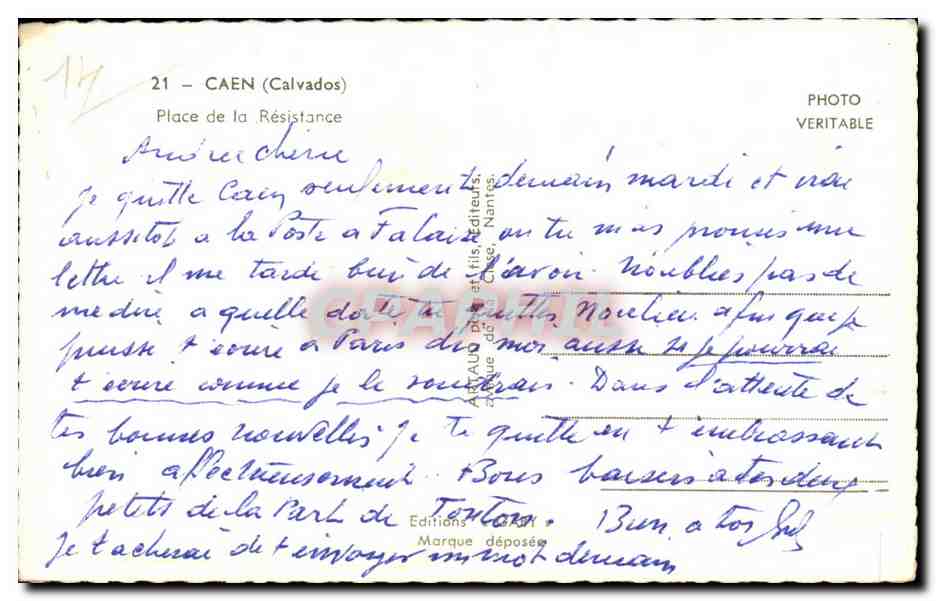 14
21 — CAEN (Calvados)
Place de la Résistance
PHOTO
VERITABLE
Andrée chérie
Je quitte Caen seulement demain mardi et irai
aussitot a la Poste a Falaise ou tu m'as promis une
lettre il me tarde bien de l'avoir. N'oublies pas de
me dire a quelle date tu quittes afin que je
puisse t'écrire a Paris dis moi aussi si je pourrai
t'écrire comme je le voudrais. Dans l'attente de
tes bonnes nouvelles je te quitte en t'embrassant
bien affectueusement. Bons baisers a tes deux
petits de la Part de Tonton. Bien a toi
Je tacherai de t'envoyer un mot demain
ARTAUD père et fils, Éditeurs.
avenue de la Close, Nantes.
Editions GABY
Marque déposée
CPARTIL